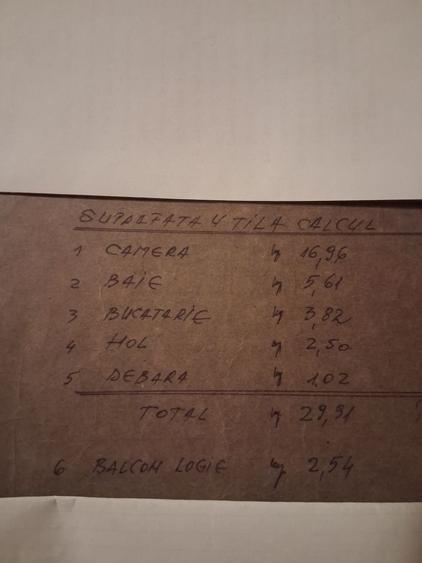 SUPRAFATA UTILA CALCUL
1 CAMERA 16,96
2 BAIE 5,61
3 BUCATARIE 3,82
4 HOL 2,50
5 DEBARA 1,02
TOTAL 29,91
6 BALCON LOGIE 2,54